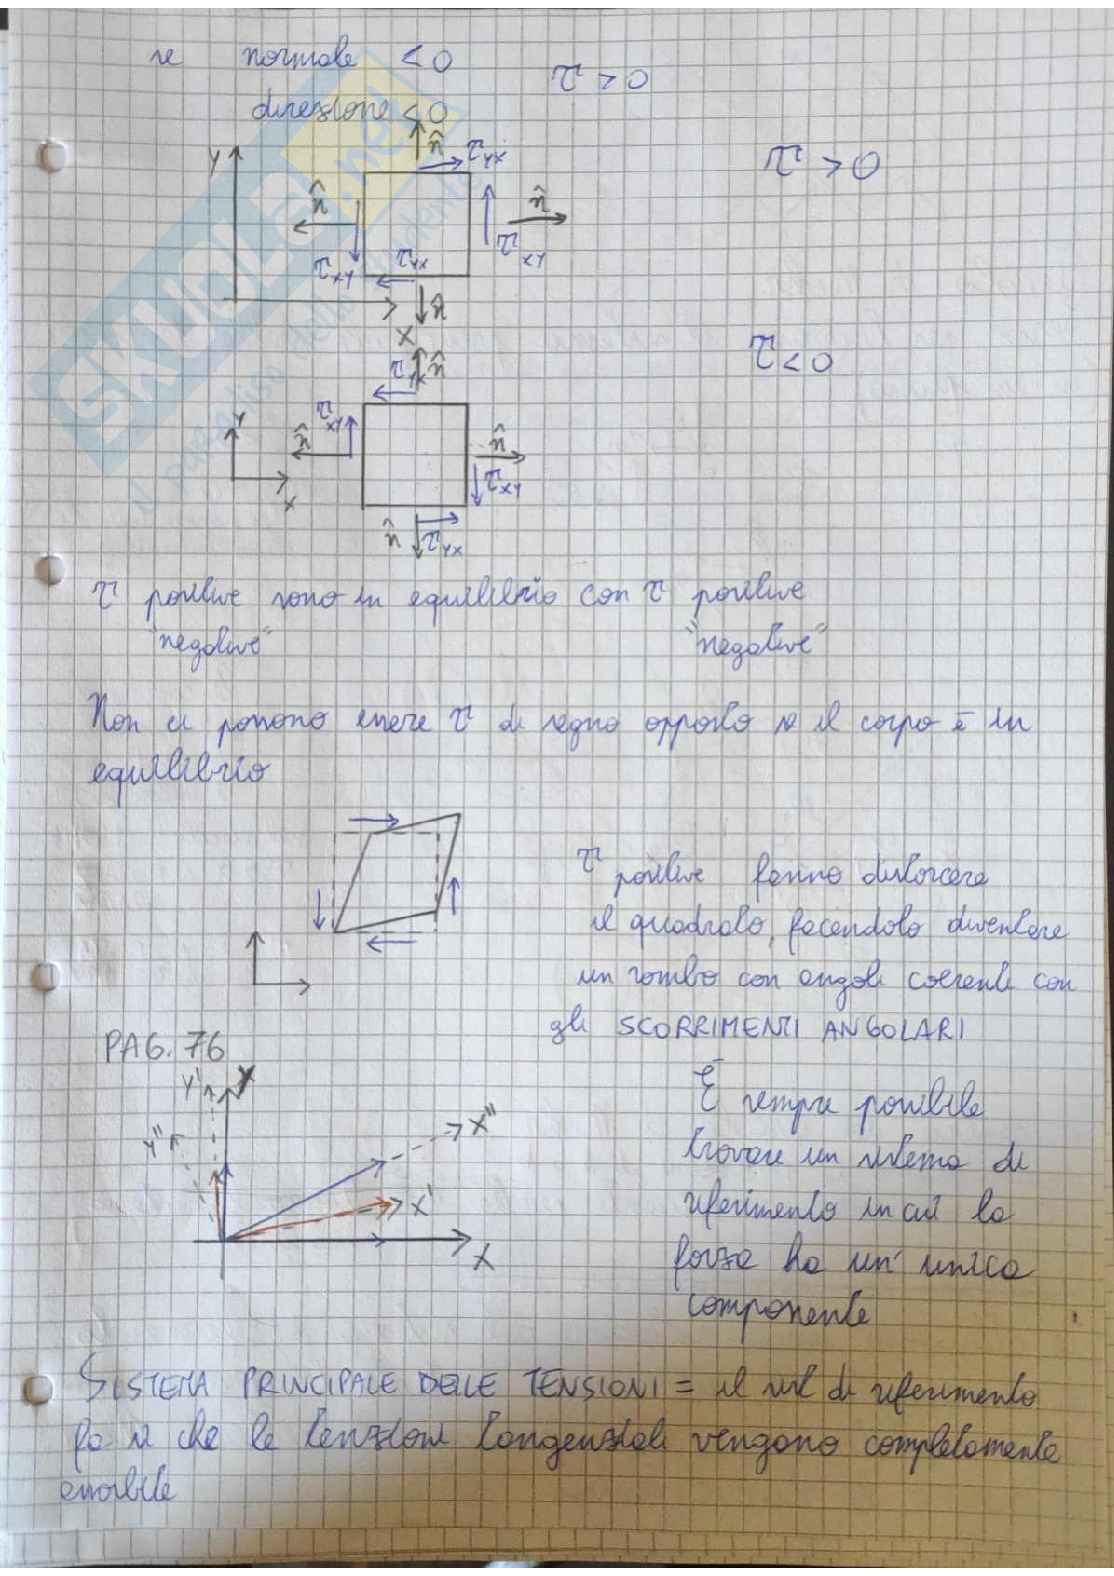 se normale < 0
τ > 0
direzione < 0
n̂
τyx
Y
τ > 0
n̂
n̂
τxy
τxy
τyx
n̂
X
τ < 0
τyx
n̂
τxy
Y
n̂
n̂
τxy
X
n̂
τyx
τ positive sono in equilibrio con τ positive
"negative" "negative"
Non ci possono essere τ di segno opposto se il corpo è in
equilibrio
τ positive fanno distorcere
il quadrato, facendolo diventare
un rombo con angoli coerenti con
gli SCORRIMENTI ANGOLARI
PAG. 76
Y' Y
È sempre possibile
Y"
X"
trovare un sistema di
X'
riferimento in cui la
X
forza ha un' unica
componente
SISTEMA PRINCIPALE DELLE TENSIONI = il sist di riferimento
fa sì che le tensioni tangenziali vengono completamente
annullate
SKUOLA.net